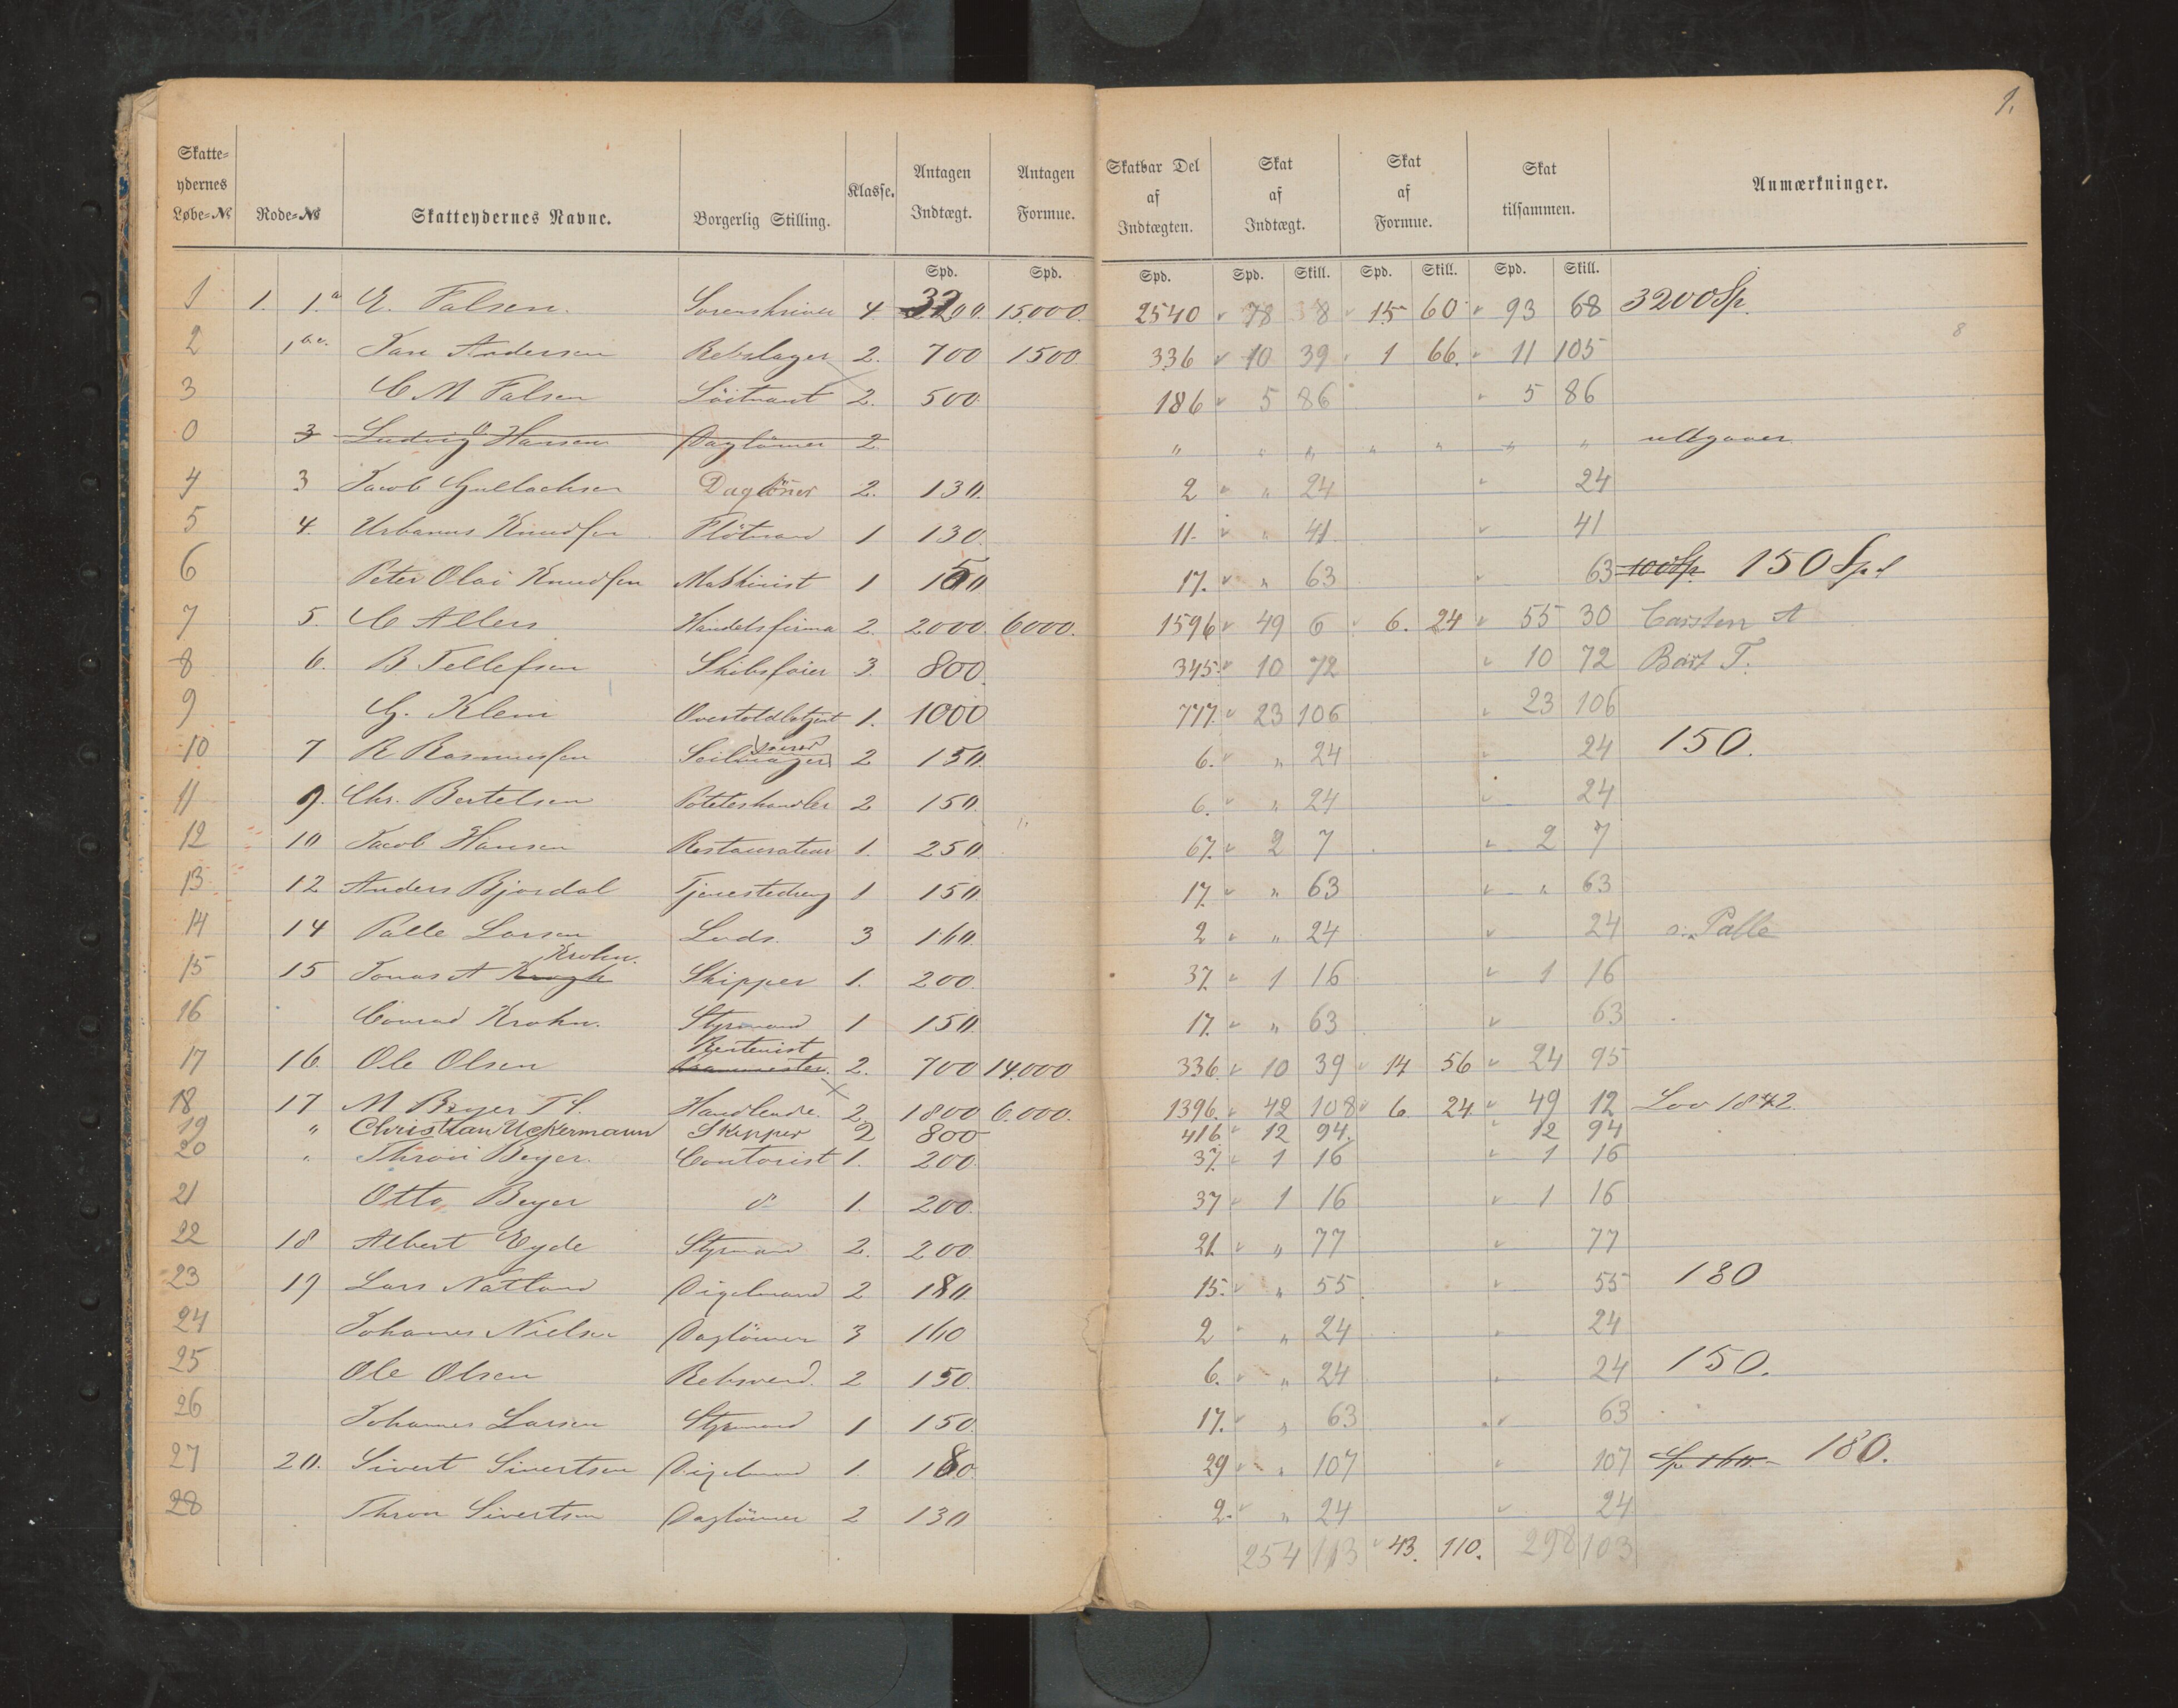 1.
Skatte-ydernes Løbe-№ Rode-№ Skatteydernes Navne. Borgerlig Stilling. Klasse. Antagen Indtægt. Antagen Formue. Skatbar Del af Indtægten. Skat af Indtægt. Skat af Formue. Skat tilsammen. Anmærkninger.
Spd. Spd. Spd. Spd. Skill. Spd. Skill. Spd. Skill.
1 1. 1.a E. Falsen. Sorenskriver 4. 3200. 15000. 2540 78 38 15 60 93 68 3200 Sp.
2 1 b.c. Jan Andersen Rebslager 2. 700 1500 336 10 39 1 66. 11 105
3 C M Falsen Löitnant 2. 500 186 5 86 5 86
0 3 Ludvig Hansen Daglönner 2. " " " " " " " udgaaer
4 3 Jacob Gullachsen Daglöner 2. 130. 2 " 24 24
5 4. Urbanus Knudsen Flötmand 1 130. 11. " 41 41
6 Peter Olai Knudsen Maskinist 1 150 17. " 63 63 100 Sp. 150 Spd
7 5. C Allers Handelsfirma 2. 2000. 6000. 1596 49 6 6. 24 55 30 Carsten A
8 6. B Tellefsen Skibsförer 3. 800. 345. 10 72 10 72 Bört T.
9 G. Klem Overtoldbetjent 1. 1000 777. 23 106 23 106
10 7 R Rasmussen Seilmager svend 2 150. 6. " 24 24 150.
11 9. Chr. Bertelsen Poteteshandler 2 150. 6. " 24 24
12 10 Jacob Hansen Restaurateur 1. 250. 67. 2 7 2 7
13 12 Anders Bjordal Tjenestedreng 1 150. 17. " 63 " 63
14 14 Palle Larsen Lods. 3 160. 2 " 24 24 Palle
15 15 Jonas A Krogh Krohn. Skipper 1. 200. 37. 1 16 1 16
16 Conrad Krohn. Styrmand 1 150. 17. " 63 63
17 16. Ole Olsen Rentenist 2. 700 14.000 336. 10 39 14 56 24 95
18 17 M Beyer Handlende. 2. 1800 6.000. 1396. 42 108 6 24. 49 12 Lov 1842.
19 " Christian Uckermann Skipper 2 800 416. 12 94. 12 94
20 " Thron Beyer. Contorist 1. 200. 37. 1 16 1 16
21 Otto Beyer do 1. 200. 37 1 16 1 16
22 18 Albert Eyde Styrmand 2. 200. 21. " 77 77
23 19 Lars Natland Digelmand 2 180 15. " 55 55 180
24 Johannes Nielsen Daglönner 3 160 2 " 24 24
25 Ole Olsen Rebsvend. 2 150. 6. " 24 24 150.
26 Johannes Larsen Styrmand 1 150. 17. " 63 63
27 20. Sivert Sivertsen Digelmand 1. 180 29 " 107 107 Sp 160.- 180.
28 Thron Sivertsen Daglönner 2 130 2. " 24 24
254 113 43. 110. 298 103